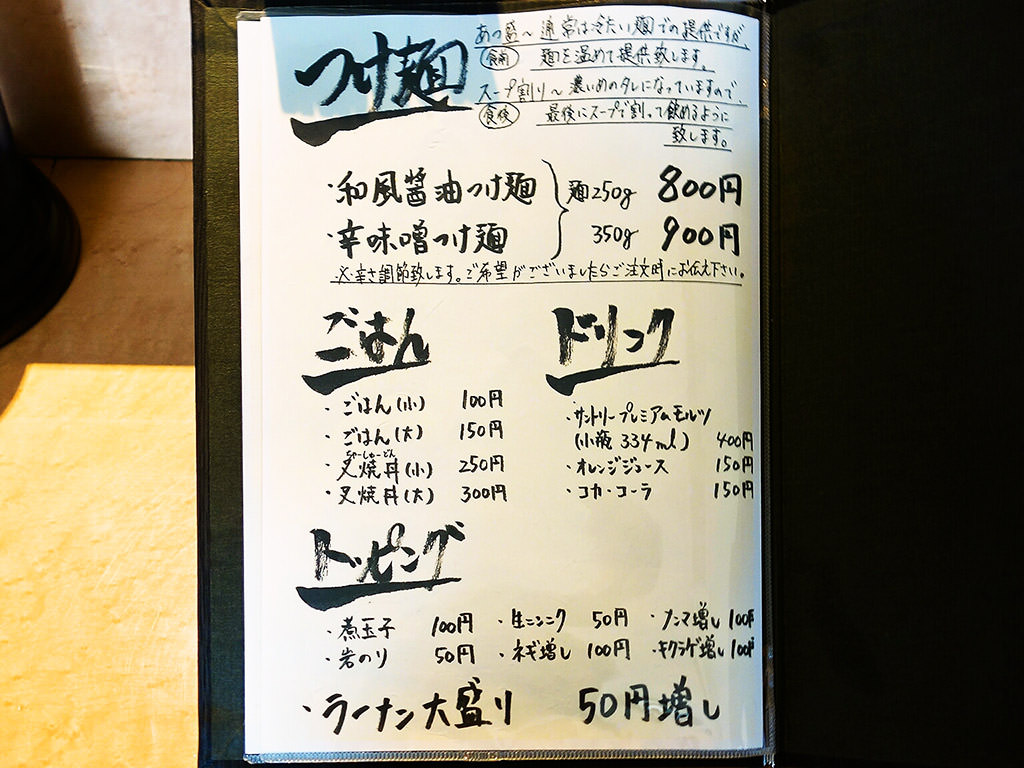 つけ麺
あつ盛〜通常は冷たい麺での提供ですが、
食前 麺を温めて提供致します。
スープ割り〜濃いめのタレになっていますので、
食後 最後にスープで割って飲めるように
致します。
・和風醤油つけ麺 麺250g 800円
・辛味噌つけ麺 350g 900円
※辛さ調節致します。ご希望がございましたらご注文時にお伝え下さい。
ごはん
・ごはん(小) 100円
・ごはん(大) 150円
ちゃーしゅーどん
・叉焼丼(小) 250円
・叉焼丼(大) 300円
ドリンク
・サントリープレミアムモルツ
(小瓶 334ml) 400円
・オレンジジュース 150円
・コカ・コーラ 150円
トッピング
・煮玉子 100円 ・生ニンニク 50円 ・メンマ増し 100円
・岩のり 50円 ・ネギ増し 100円 ・キクラゲ増し 100円
・ラーメン大盛り 50円増し